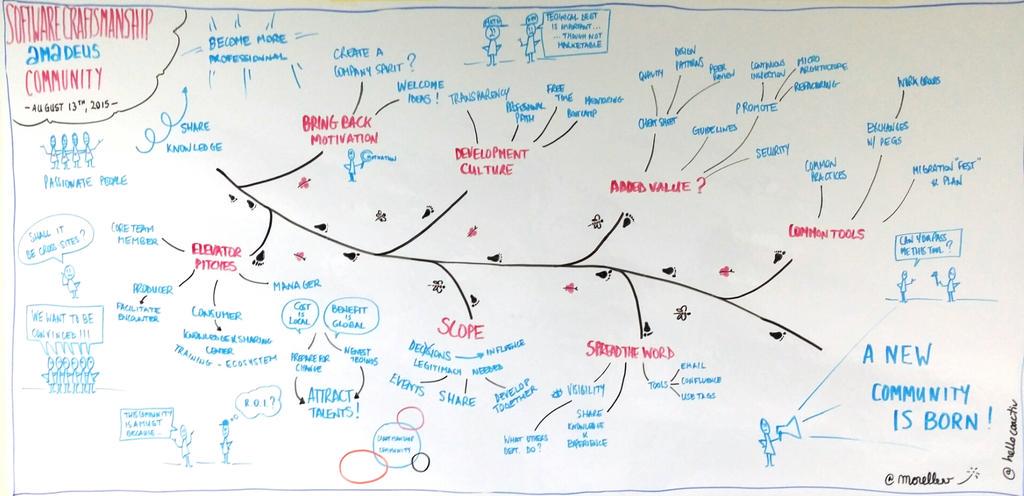 SOFTWARE CRAFTSMANSHIP
amadeus
COMMUNITY
- AUGUST 13TH, 2015 -
BECOME MORE
PROFESSIONNAL
SHARE
KNOWLEDGE
PASSIONATE PEOPLE
CREATE A
COMPANY SPIRIT?
WELCOME
IDEAS!
BRING BACK
MOTIVATION
MOTIVATION
TECHNICAL DEBT
IS IMPORTANT...
... THOUGH NOT
MARKETABLE
TRANSPARENCY
PROFESSIONAL
PATH
FREE
TIME
MENTORING
BOOTCAMP
DEVELOPMENT
CULTURE
QUALITY
DESIGN
PATTERNS
PEER
REVIEW
CONTINUOUS
MICRO
ARCHITECTURE
REFACTORING
CHEAT SHEET
GUIDELINES
PROMOTE
SECURITY
ADDED VALUE?
WORK GROUPS
EXCHANGES
W/ PEGS
COMMON
PRACTICES
MIGRATION "FEST"
& PLAN
COMMON TOOLS
CAN YOU PASS
ME THIS TOOL?
SHALL IT
BE CROSS SITES?
"WE WANT TO BE
CONVINCED!!!
CORE TEAM
MEMBER
ELEVATOR
PITCHES
PRODUCER
FACILITATE
ENCOUNTER
CONSUMER
KNOWLEDGE & SHARING
CENTER
TRAINING - ECOSYSTEM
MANAGER
COST
IS
LOCAL
BENEFIT
IS
GLOBAL
PREPARE FOR
CHANGE
NEWEST
ATTRACT
TALENTS!
THIS COMMUNITY
IS A MUST
BECAUSE...
R.O.I.?
SCOPE
DECISIONS
INFLUENCE
LEGITIMACY
NEEDED
EVENTS
SHARE
DEVELOP
TOGETHER
CRAFTMANSHIP
COMMUNITY
SPREAD THE WORD
VISIBILITY
WHAT OTHERS
DEPT. DO?
SHARE
KNOWLEDGE
&
EXPERIENCE
TOOLS
EMAIL
CONFLUENCE
USE TAGS
A NEW
COMMUNITY
IS BORN!
@morellew
@hellocoactiv